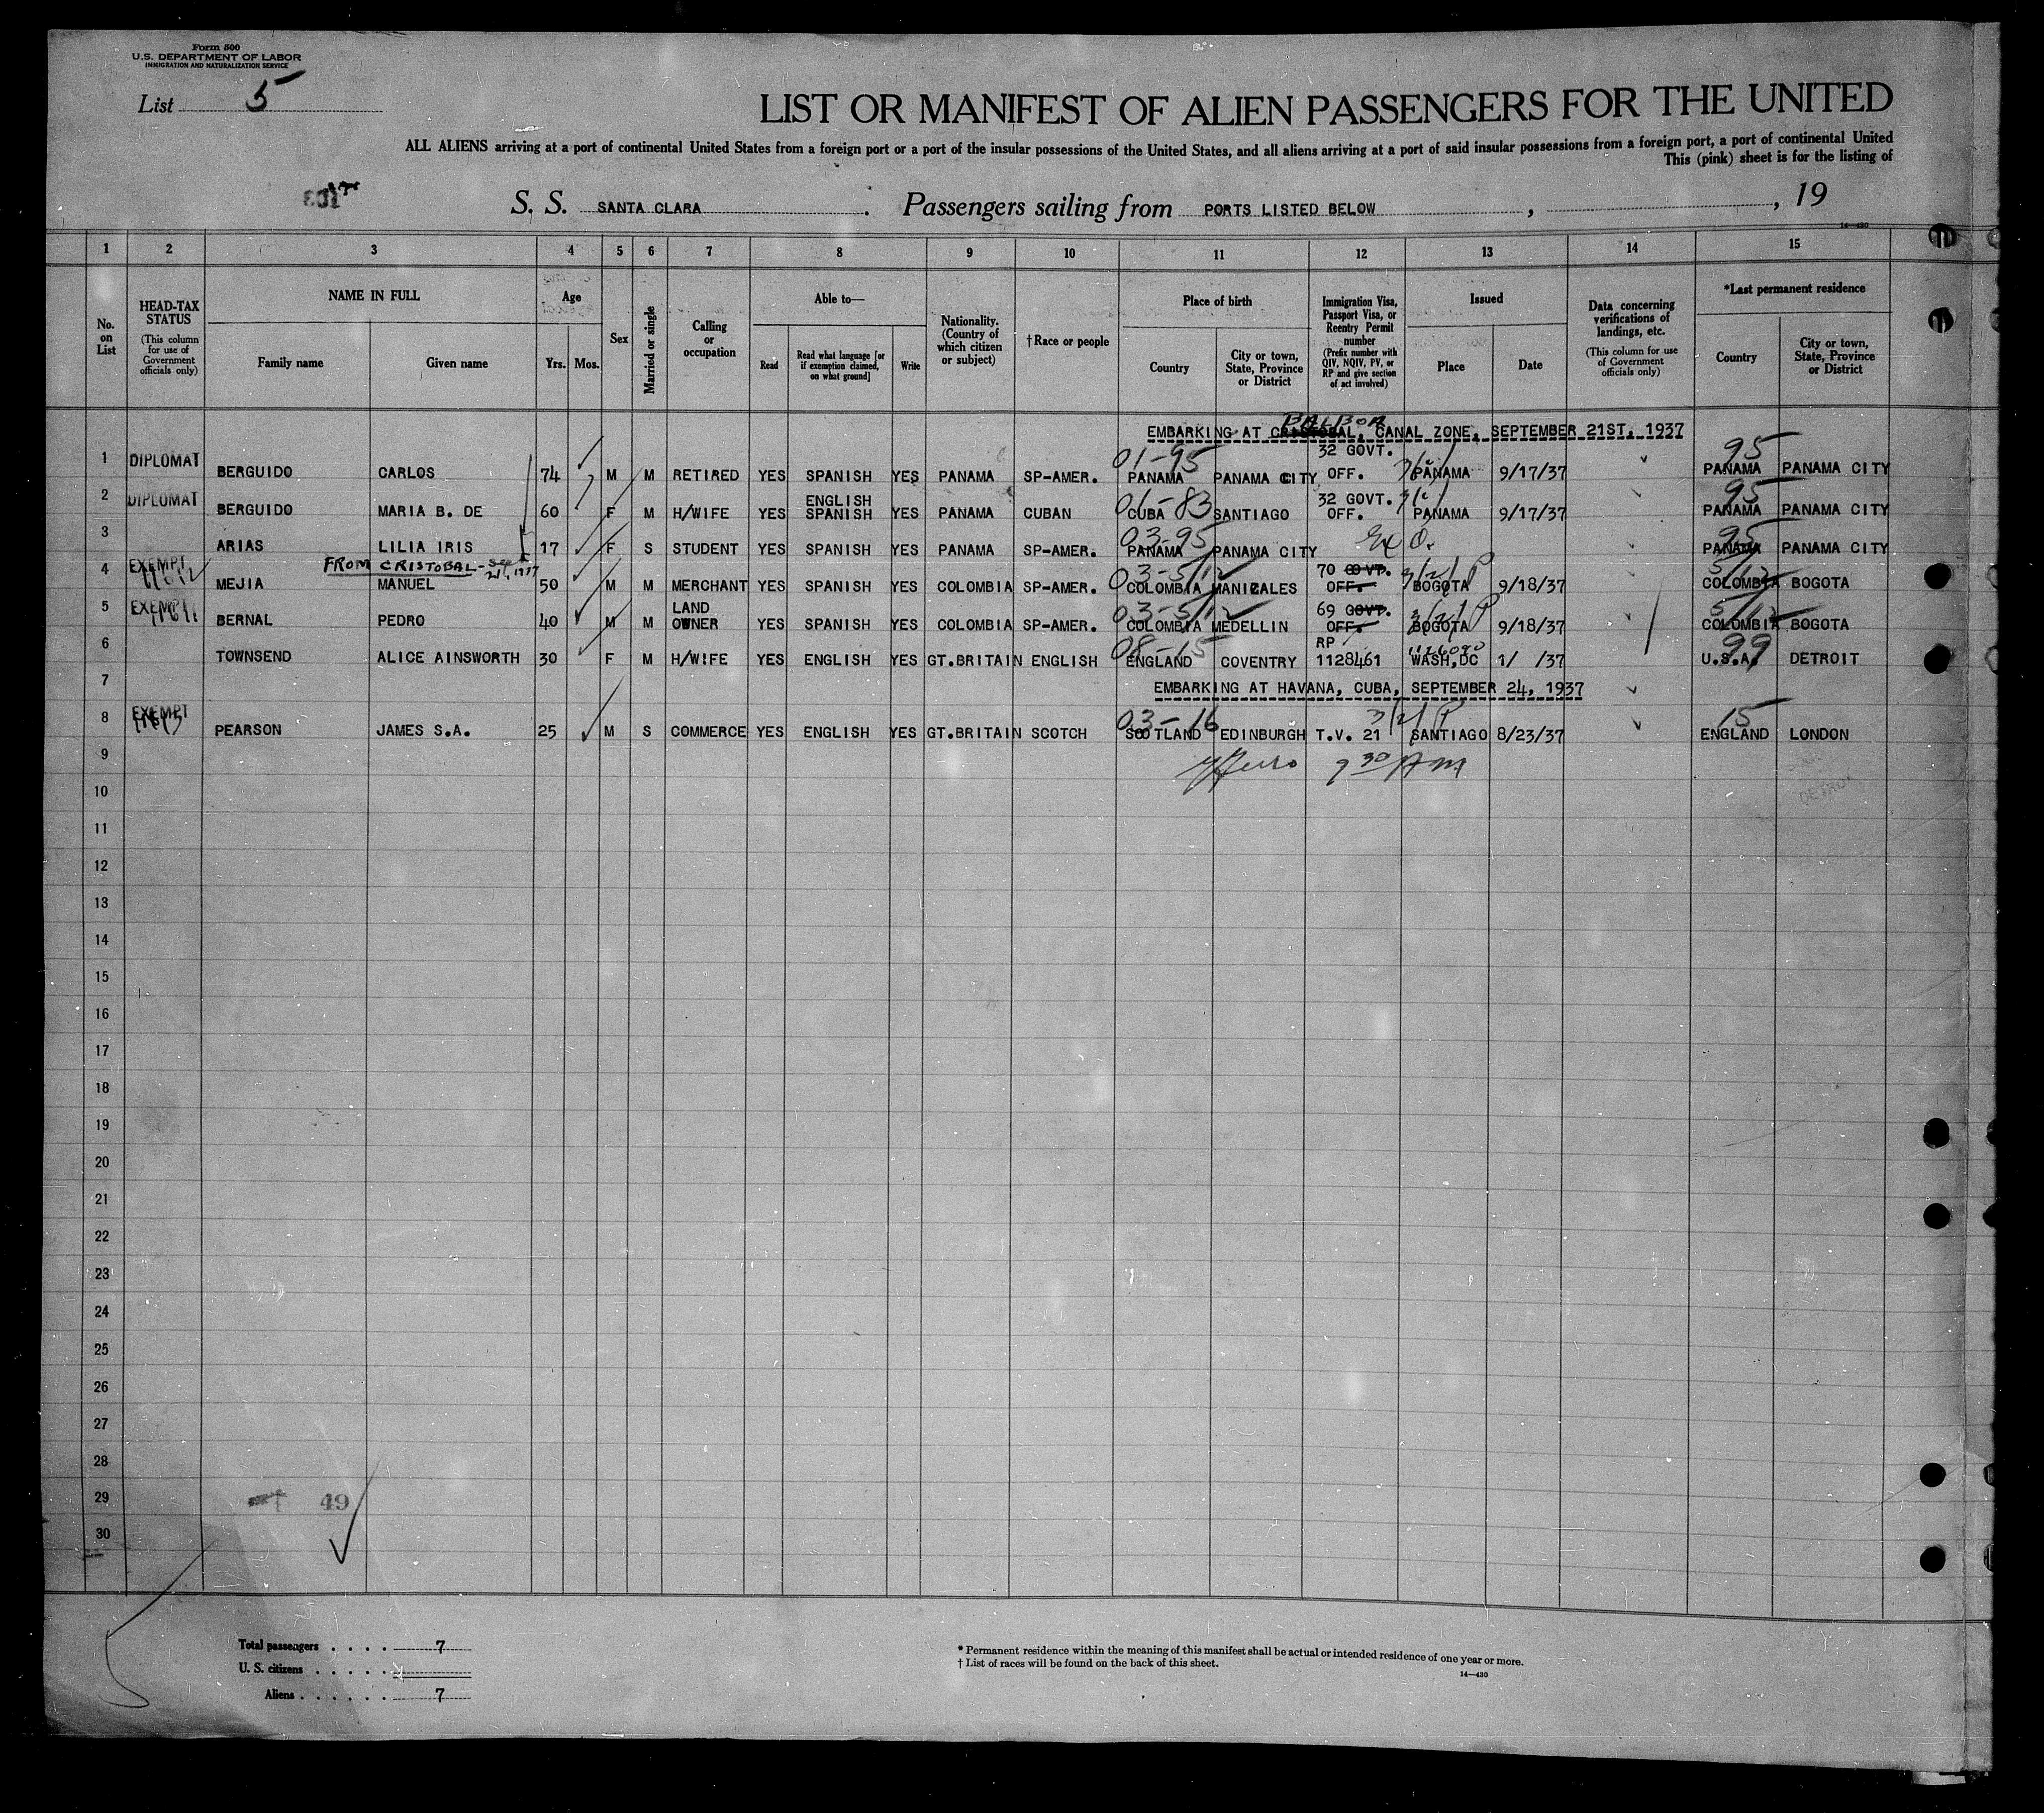 Form 500
U.S. DEPARTMENT OF LABOR
IMMIGRATION AND NATURALIZATION SERVICE
List 5
LIST OR MANIFEST OF ALIEN PASSENGERS FOR THE UNITED
ALL ALIENS arriving at a port of continental United States from a foreign port or a port of the insular possessions of the United States, and all aliens arriving at a port of said insular possessions from a foreign port, a port of continental United
This (pink) sheet is for the listing of
S. S. SANTA CLARA. Passengers sailing from PORTS LISTED BELOW, , 19
14—430
1 2 3 4 5 6 7 8 9 10 11 12 13 14 15
No. on List
HEAD-TAX STATUS (This column for use of Government officials only)
NAME IN FULL
Family name
Given name
Age
Yrs. Mos.
Sex
Married or single
Calling or occupation
Able to—
Read
Read what language [or if exemption claimed, on what ground]
Write
Nationality. (Country of which citizen or subject)
†Race or people
Place of birth
Country
City or town, State, Province or District
Immigration Visa, Passport Visa, or Reentry Permit number (Prefix number with QIV, NQIV, PV, or RP and give section of act involved)
Issued
Place
Date
Data concerning verifications of landings, etc. (This column for use of Government officials only)
*Last permanent residence
Country
City or town, State, Province or District
BALBOA
EMBARKING AT CRISTOBAL, CANAL ZONE, SEPTEMBER 21ST, 1937
1 DIPLOMAT BERGUIDO CARLOS 74 M M RETIRED YES SPANISH YES PANAMA SP-AMER. 01-95 PANAMA PANAMA CITY 32 GOVT. OFF. PANAMA 9/17/37 95 PANAMA PANAMA CITY
2 DIPLOMAT BERGUIDO MARIA B. DE 60 F M H/WIFE YES ENGLISH SPANISH YES PANAMA CUBAN 01-83 CUBA SANTIAGO 32 GOVT. OFF. PANAMA 9/17/37 95 PANAMA PANAMA CITY
3 ARIAS LILIA IRIS 17 F S STUDENT YES SPANISH YES PANAMA SP-AMER. 03-95 PANAMA PANAMA CITY 95 PANAMA PANAMA CITY
FROM CRISTOBAL - Sep 21, 1937
4 EXEMPT MEJIA MANUEL 50 M M MERCHANT YES SPANISH YES COLOMBIA SP-AMER. 03-5/12 COLOMBIA MANIZALES 70 GOVT. OFF. 3/2/ P BOGOTA 9/18/37 5/12 COLOMBIA BOGOTA
5 EXEMPT BERNAL PEDRO 40 M M LAND OWNER YES SPANISH YES COLOMBIA SP-AMER. 03-5/12 COLOMBIA MEDELLIN 69 GOVT. OFF. 3/2/ P BOGOTA 9/18/37 5/12 COLOMBIA BOGOTA
6 TOWNSEND ALICE AINSWORTH 30 F M H/WIFE YES ENGLISH YES GT.BRITAIN ENGLISH 08-15 ENGLAND COVENTRY RP 1128461 WASH,DC 1/ /37 99 U.S.A. DETROIT
7 EMBARKING AT HAVANA, CUBA, SEPTEMBER 24, 1937
8 EXEMPT PEARSON JAMES S.A. 25 M S COMMERCE YES ENGLISH YES GT.BRITAIN SCOTCH 03-16 SCOTLAND EDINBURGH T.V. 21 3/2/ P SANTIAGO 8/23/37 15 ENGLAND LONDON
9 9 30 AM
10
11
12
13
14
15
16
17
18
19
20
21
22
23
24
25
26
27
28
29 49
30
Total passengers . . . . 7
U. S. citizens . . . . .
Aliens . . . . . . 7
* Permanent residence within the meaning of this manifest shall be actual or intended residence of one year or more.
† List of races will be found on the back of this sheet.
14—430